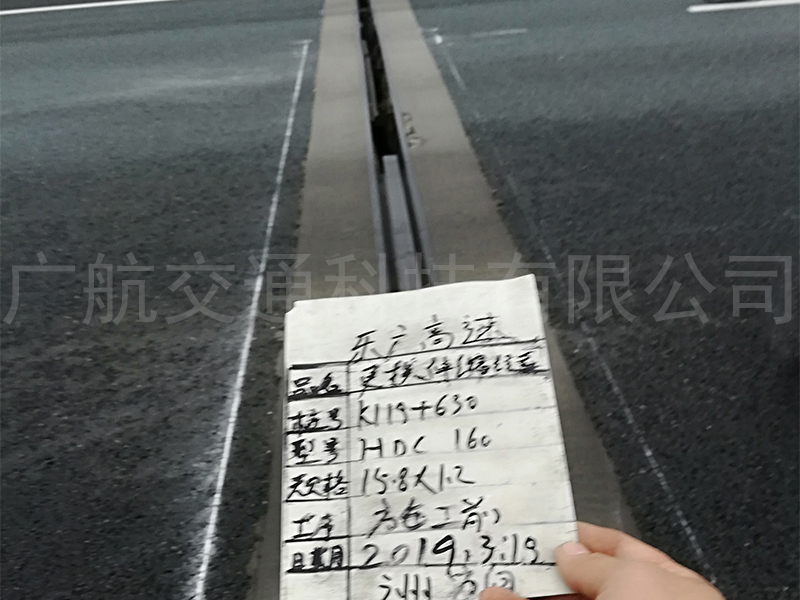 广航交通科技有限公司
乐广高速
品名 更换伸缩缝
桩号 K119+630
型号 HDC 160
规格 15.8×1.2
工序 施工前
日期 2019.3.19